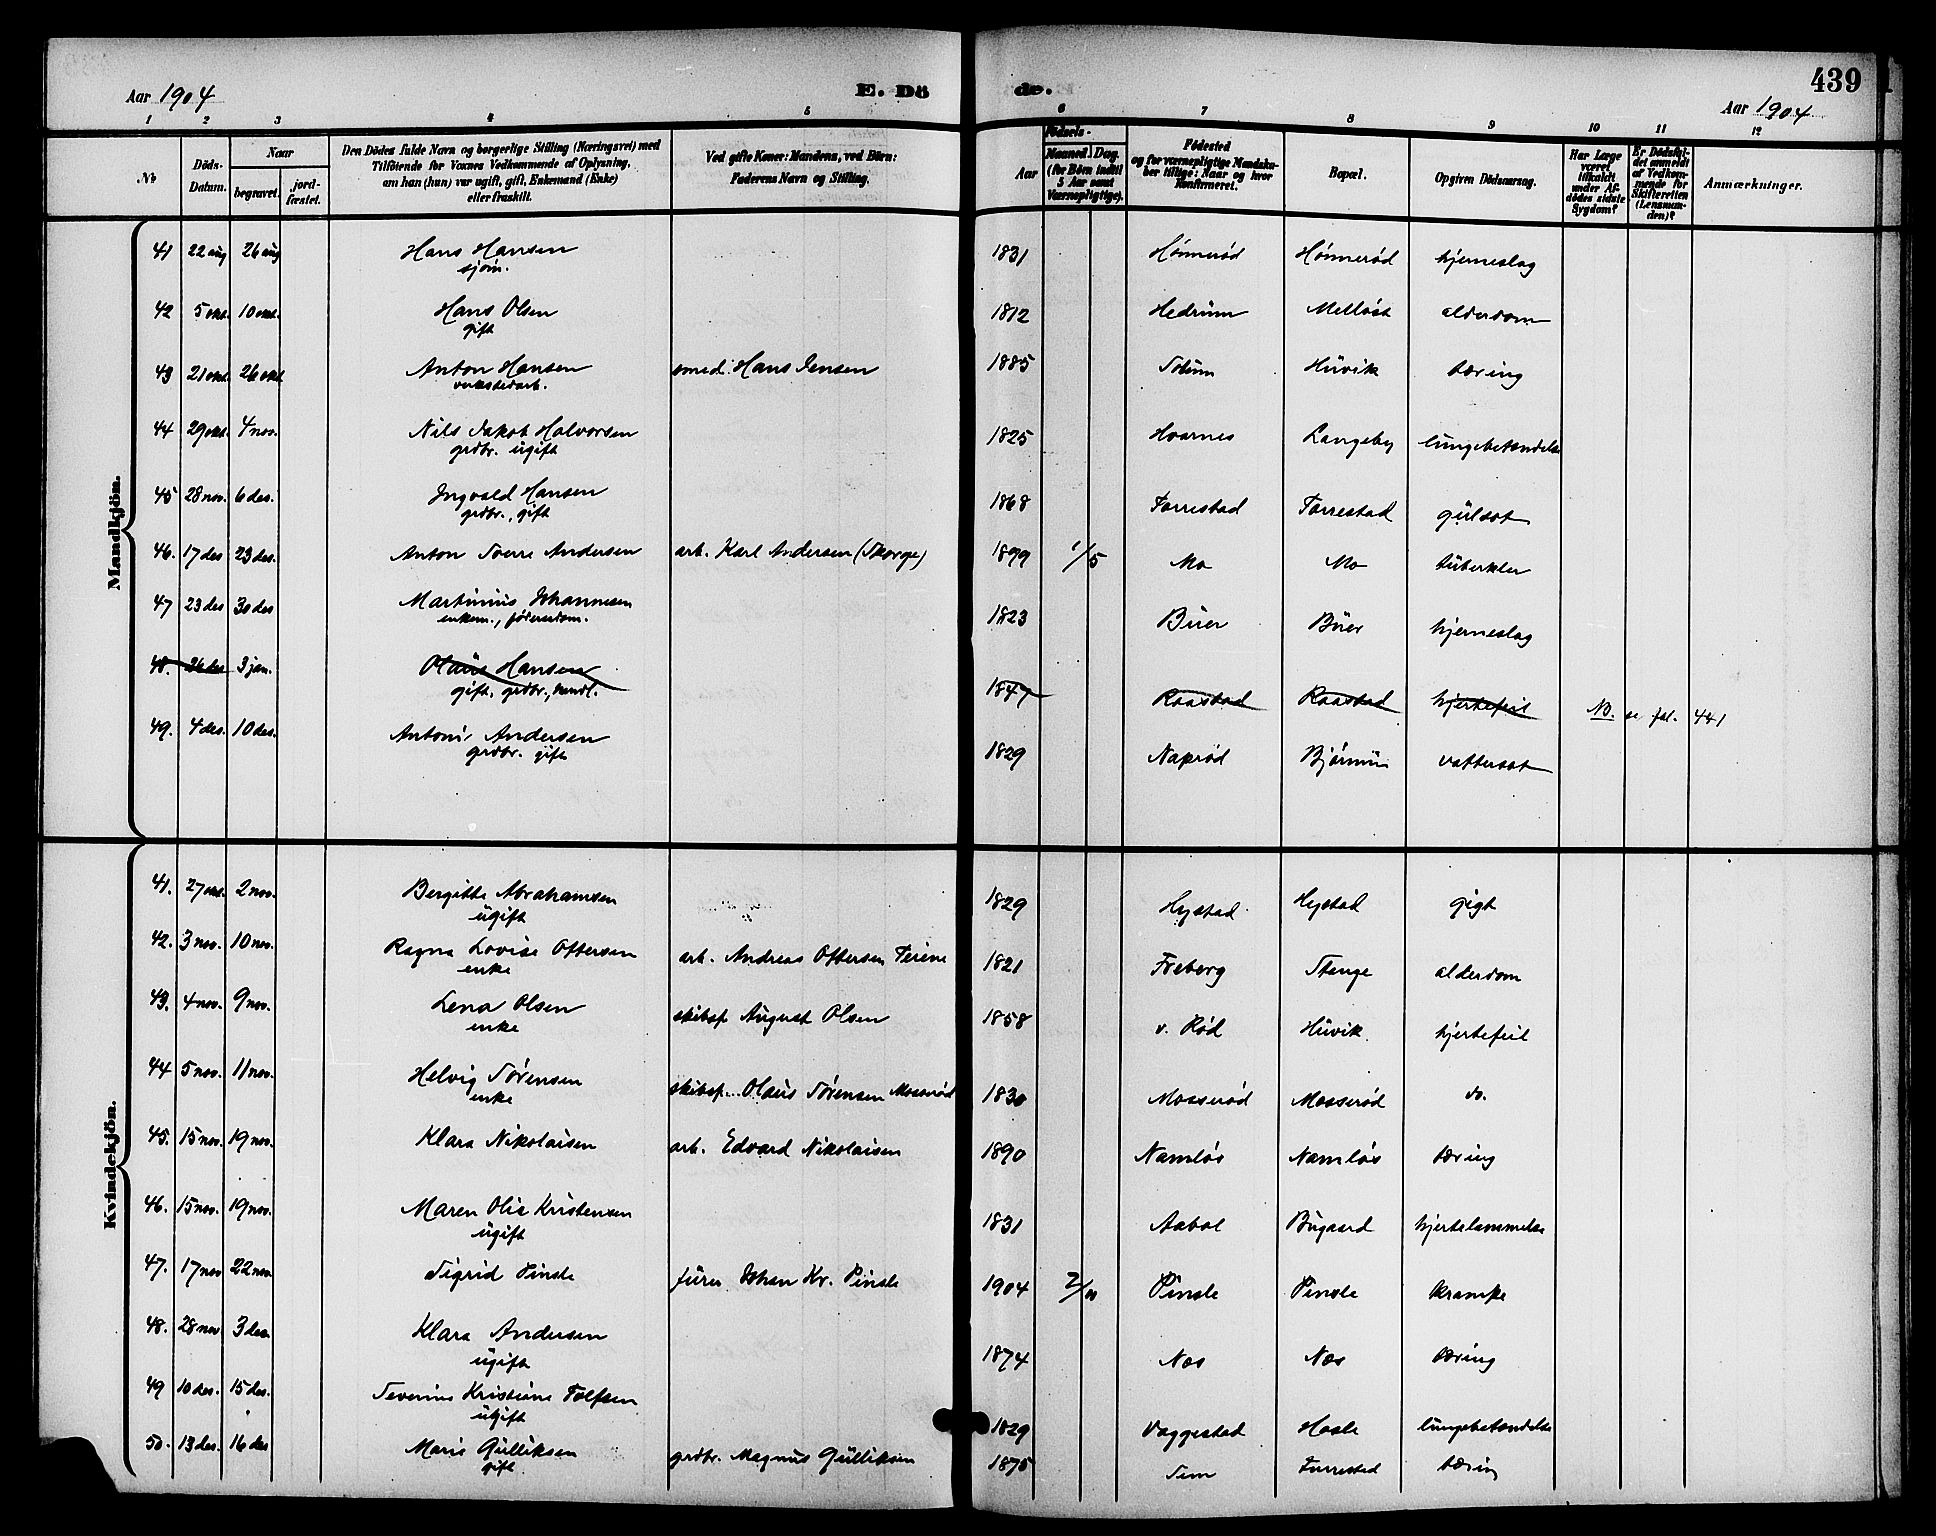 439
Aar 1904
E. Döde.
Aar 1904
1 2 3 4 5 6 7 8 9 10 11 12
No
Döds-Datum.
Naar
begravet.
jord-fæstet.
Den Dödes fulde Navn og borgerlige Stilling (Næringsvei) med
Tilföiende for Voxnes Vedkommende af Oplysning,
om han (hun) var ugift, gift, Enkemand (Enke)
eller fraskilt.
Ved gifte Koner: Mandens, ved Börn:
Faderens Navn og Stilling.
Födsels-
Aar
Maaned. Dag.
(for Börn indtil
5 Aar samt
Værnepligtige).
Födested
og for værnepligtige Mandskaber tillige: Naar og hvor
Konfirmeret.
Bopæl.
Opgiven Dödsaarsag.
Har Læge været tilkaldt under Afdödes sidste Sygdom?
Er Dödsfaldet anmeldt af Vedkommende for Skifteretten (Lensmanden)?
Anmærkninger.
Mandkjön.
41 22 aug 26 aug Hans Hansen 1831 Hönneröd Hönneröd hjerneslag
sjöm.
42 5 okt. 10 okt. Hans Olsen 1812 Hedrum Melløst alderdom
gift
43 21 okt. 26 okt Anton Hansen smed. Hans Jensen 1885 Solum Huvik tæring
verkstedarb.
44 29 okt. 4 nov. Nils Jakob Halvorsen 1825 Hvarnes Langeby lungebetændelse
grdbr. ugift
45 28 nov. 6 des. Ingvald Hansen 1868 Forrestad Forrestad gulsot
grdbr., gift
46. 17 des 23 des. Anton Sverre Andersen arb. Karl Andersen (Skorge) 1899 1/5 Mo Mo tuberkler
47 23 des 30 des Martinius Johannesen 1823 Buer Buer hjerneslag
enkem., föderaadsm.
48. 26 des 3 jan. Olaus Hansen 1847 Raastad Raastad hjertefeil NB. se fol. 441
gift. grdbr., handl.
49. 4 des. 10 des. Antoni Andersen 1829 Napröd Bjørnum vattersot
grdbr. gift
Kvindekjön.
41. 27 okt. 2 nov. Bergitte Abrahamsen 1829 Hystad Hystad gigt
ugift
42. 3 nov. 10 nov. Ragna Lovise Oftersen arb. Andreas Oftersen Feiene 1821 Freberg Stange alderdom
enke
43. 4 nov. 9 nov. Lena Olsen skibsf August Olsen 1858 v. Rød Huvik hjertefeil
enke
44 5 nov. 11 nov. Helvig Sørensen skibsf. Olaus Sørensen Mosserød 1830 Mosserød Mosserød do.
enke
45. 15 nov. 19 nov. Klara Nikolaisen arb. Edvard Nikolaisen 1890 Namløs Namløs tæring
46. 15 nov. 19 nov. Maren Olia Kristensen 1831 Aabol Bugaard hjertelammelse
ugift
47. 17 nov 22 nov Sigrid Pinsle furer Johan Kr. Pinsle 1904 2/10 Pinsle Pinsle krampe
48. 28 nov 3 des. Klara Andersen 1874 Næs Næs tæring
ugift
49 10 des. 15 des. Severine Kristiane Tolfsen 1829 Vaggestad Hasle lungebetændelse
ugift
50. 13 des. 16 des Marie Gulliksen grdbr. Magnus Gulliksen 1875 Sem Furrestad tæring
gift